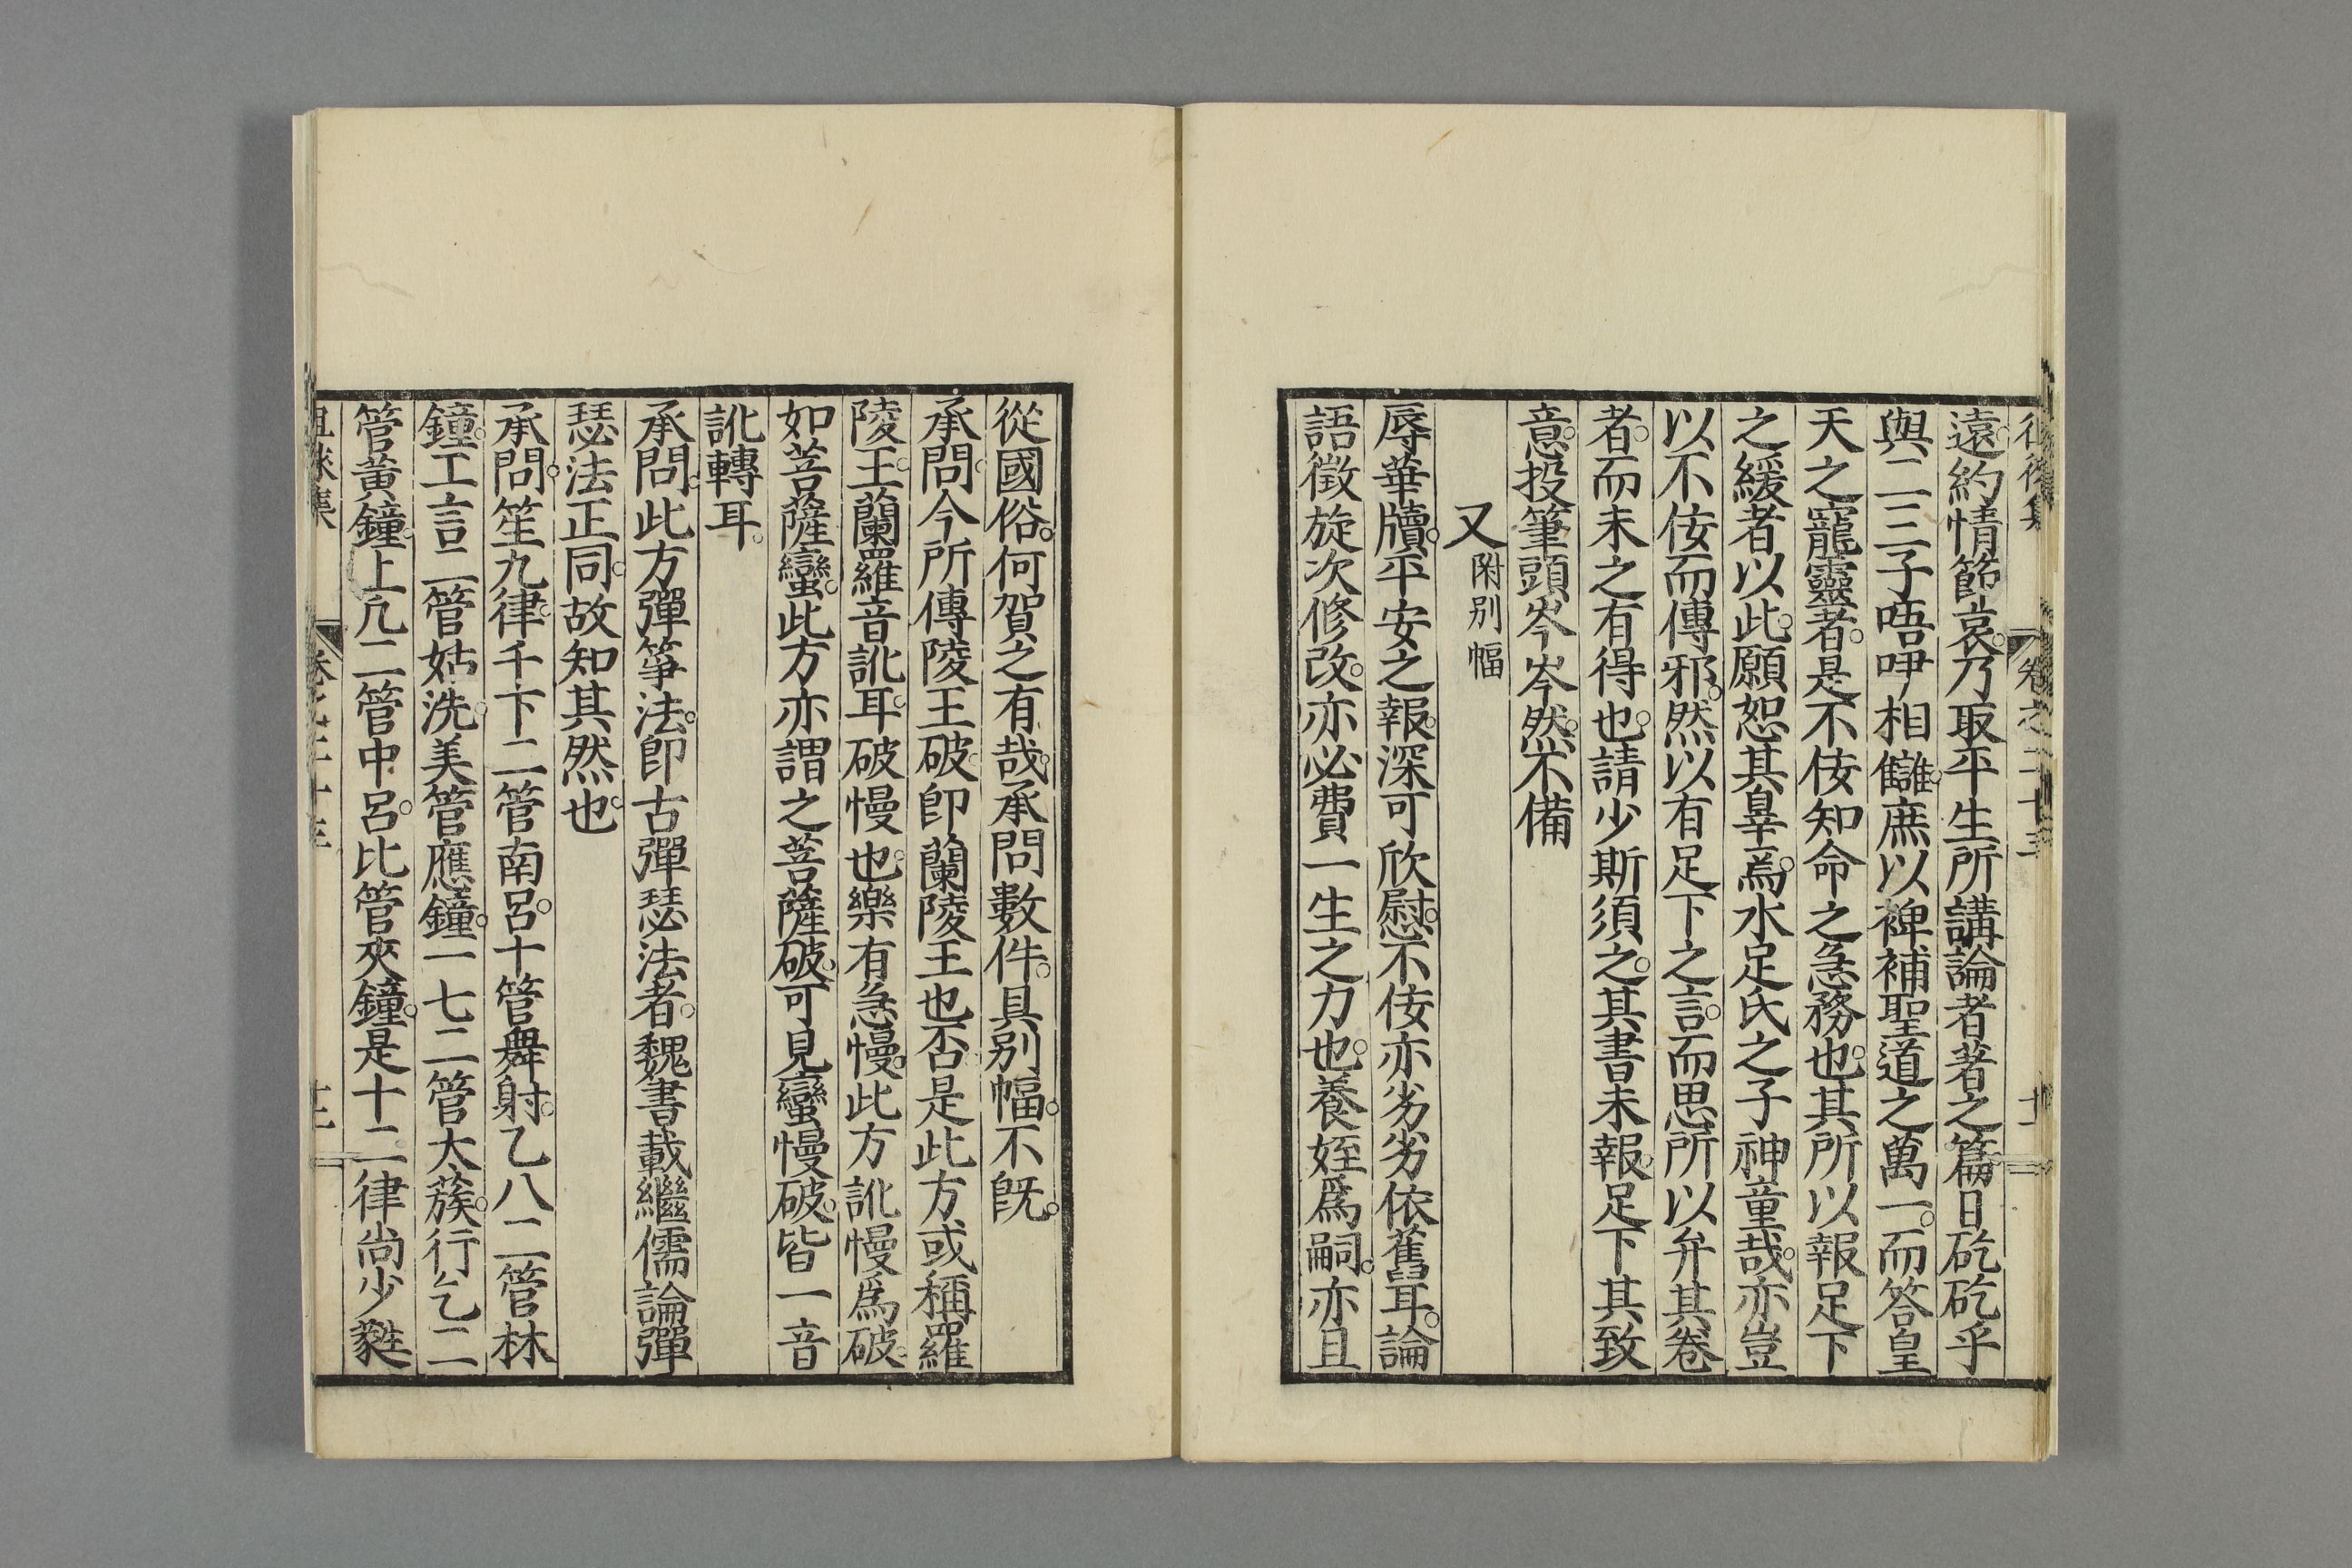 遠。約情節哀。乃取平生所講論者著之篇。日矻矻乎
與二三子唔吚相讎。庶以裨補聖道之萬一。而答皇
天之寵靈者。是不侫知命之急務也。其所以報足下
之緩者以此。願恕其辠焉。水足氏之子神童哉。亦豈
以不侫而傳邪。然以有足下之言。而思所以弁其卷
者。而未之有得也。請少斯須之。其書未報。足下其致
意。投筆頭岑岑然。不備
又 附別幅
辱華牘。平安之報。深可欣慰。不侫亦劣劣依舊耳。論
語徵旋次修改。亦必費一生之力也。養姪爲嗣。亦且
從國俗。何賀之有哉。承問數件。具別幅。不旣。
承問。今所傳陵王破。卽蘭陵王也否。是此方或稱羅
陵王。蘭羅音訛耳。破慢也。樂有急慢。此方訛慢爲破。
如菩薩蠻。此方亦謂之菩薩破。可見蠻慢破。皆一音
訛轉耳。
承問。此方彈箏法。卽古彈瑟法者。魏書載繼儒論彈
瑟法正同。故知其然也。
承問。笙九律。千下二管南呂。十管舞射。乙八二管林
鐘。工言二管姑洗。美管應鐘。一七二管大蔟。行乞二
管黃鐘。上凢二管中呂。比管夾鐘。是十二律尚少蕤